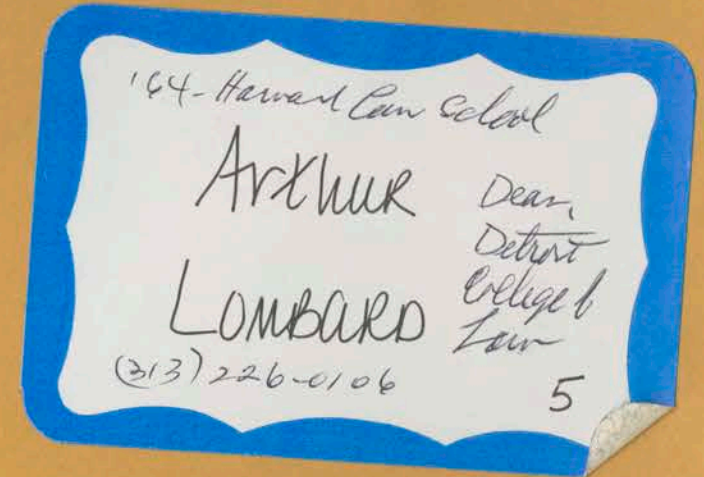 '64-Harvard Law School
Arthur
LOMBARD
Dean,
Detroit
College of
Law
(313) 226-0106
5